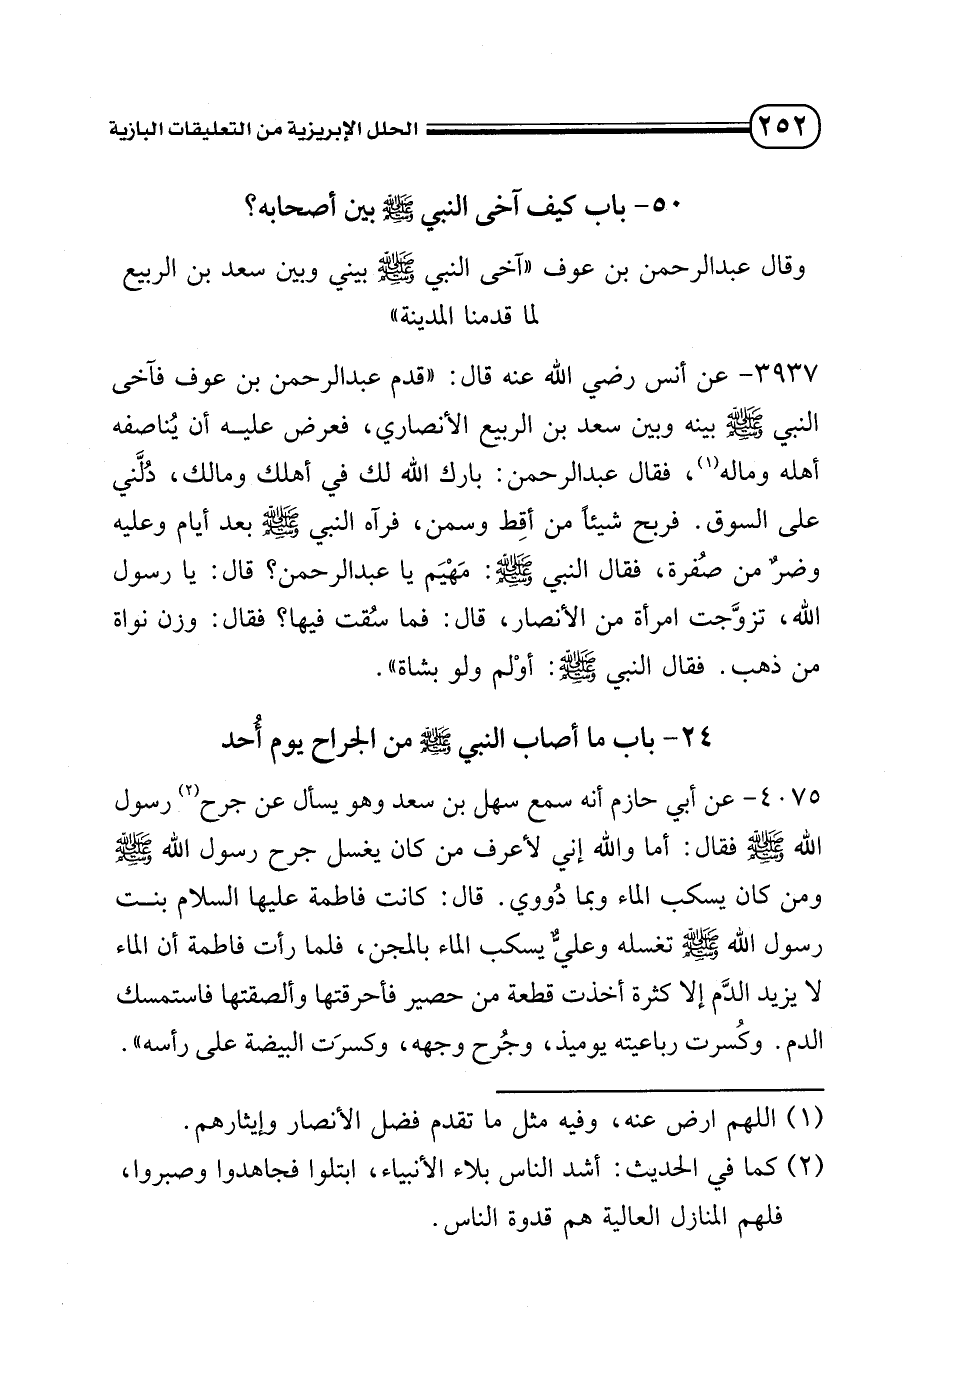 ٢٥٢ الحلل الإبريزية من التعليقات البازية
٥٠- باب كيف آخى النبي ﷺ بين أصحابه؟
وقال عبدالرحمن بن عوف «آخى النبي ﷺ بيني وبين سعد بن الربيع
لما قدمنا المدينة»
٣٩٣٧- عن أنس رضي الله عنه قال: «قدم عبدالرحمن بن عوف فآخى
النبي ﷺ بينه وبين سعد بن الربيع الأنصاري، فعرض عليه أن يُناصفه
أهله وماله(١)، فقال عبدالرحمن: بارك الله لك في أهلك ومالك، دُلَّني
على السوق. فربح شيئاً من أقِط وسمن، فرآه النبي ﷺ بعد أيام وعليه
وضرٌ من صُفرة، فقال النبي ﷺ: مَهْيَم يا عبدالرحمن؟ قال: يا رسول
الله، تزوَّجت امرأة من الأنصار، قال: فما سُقت فيها؟ فقال: وزن نواة
من ذهب. فقال النبي ﷺ: أوْلم ولو بشاة».
٢٤- باب ما أصاب النبي ﷺ من الجراح يوم أُحد
٤٠٧٥- عن أبي حازم أنه سمع سهل بن سعد وهو يسأل عن جرح(٢) رسول
الله ﷺ فقال: أما والله إني لأعرف من كان يغسل جرح رسول الله ﷺ
ومن كان يسكب الماء وبما دُووي. قال: كانت فاطمة عليها السلام بنت
رسول الله ﷺ تغسله وعليٌّ يسكب الماء بالمجن، فلما رأت فاطمة أن الماء
لا يزيد الدَّم إلا كثرة أخذت قطعة من حصير فأحرقتها وألصقتها فاستمسك
الدم. وكُسرت رباعيته يوميذ، وجُرح وجهه، وكسرَت البيضة على رأسه».
(١) اللهم ارض عنه، وفيه مثل ما تقدم فضل الأنصار وإيثارهم.
(٢) كما في الحديث: أشد الناس بلاء الأنبياء، ابتلوا فجاهدوا وصبروا،
فلهم المنازل العالية هم قدوة الناس.